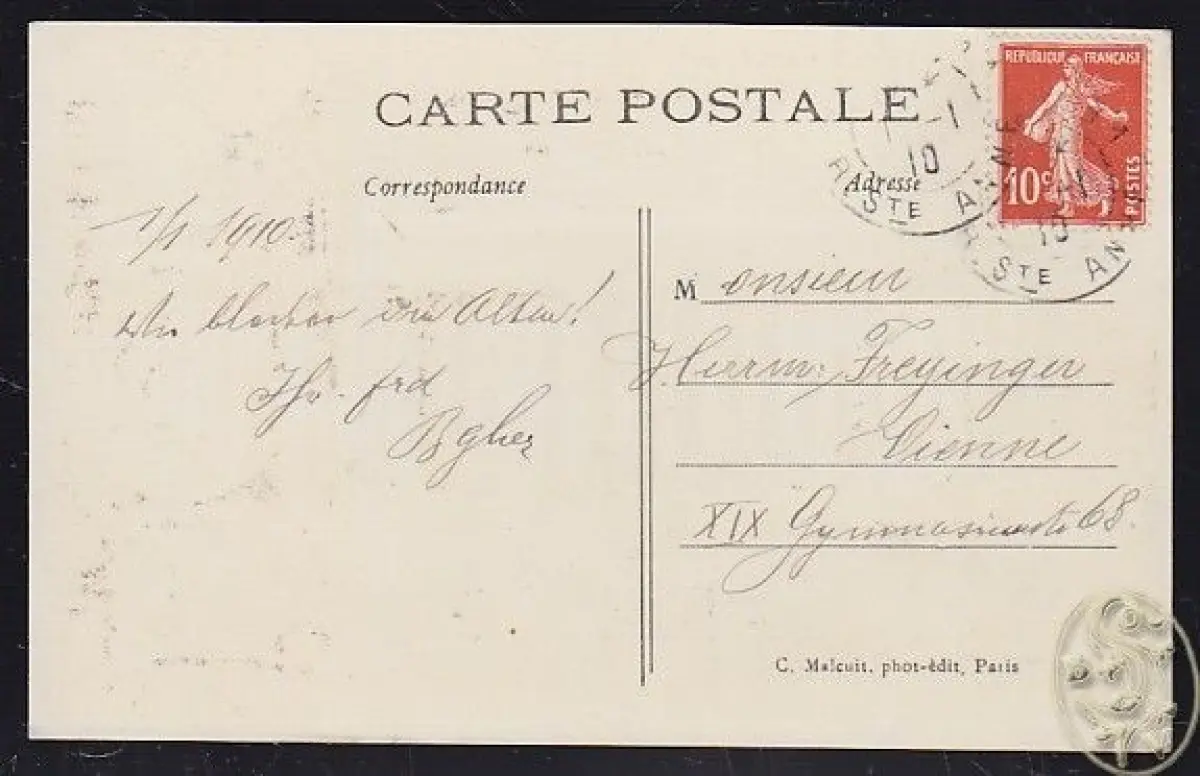 CARTE POSTALE
Correspondance
Adresse
REPUBLIQUE FRANÇAISE
10c
POSTES
1-1
10
STE ANNE
1-1
10
STE ANNE
1/1 1910.
Wir bleiben die Alten!
Ihr. frd
Monsieur
Herrm. Freyinger
Vienne
XIX Gymnasiumstr 68.
C. Malcuit, phot-édit, Paris